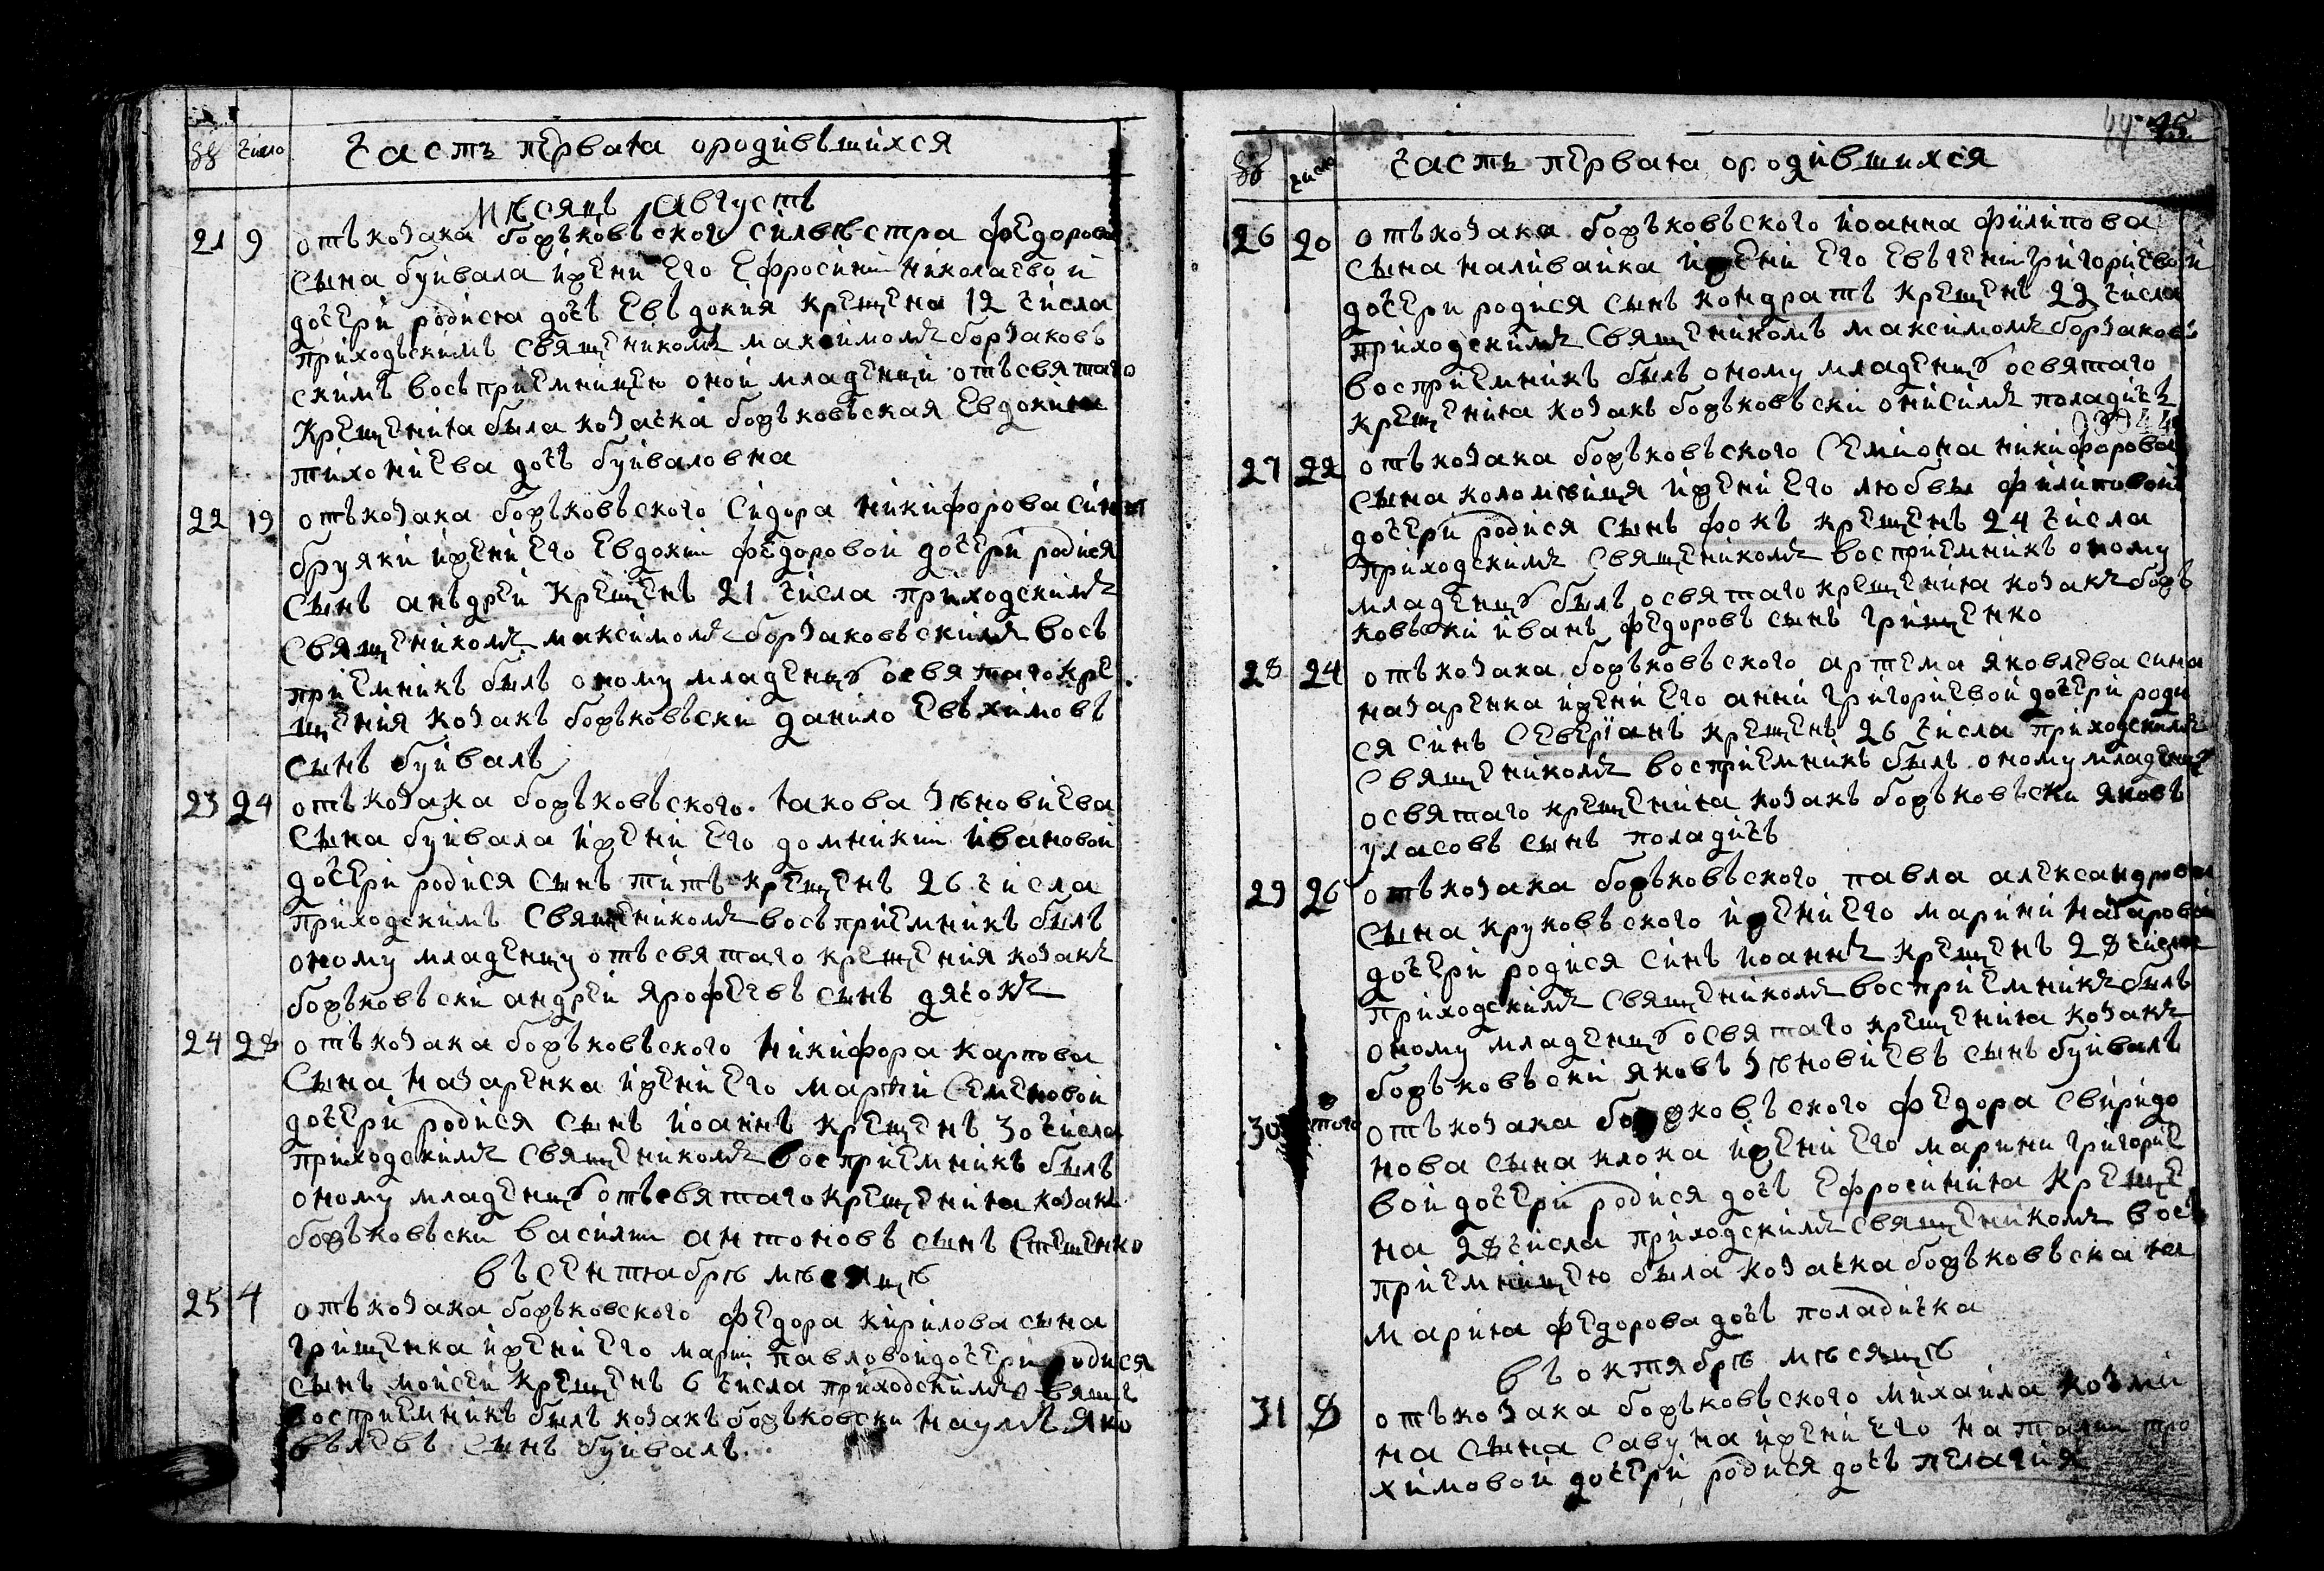 № число Часть перваꙗ ородивъшихся
Мѣсяцъ Августъ
21 9 отъ козака боръковъского силвѣстра Федорова
сына буйвала и жени его Ефросинии николаевои
дочери родисꙗ дочъ Евъдокия крещена 12 числа
приходъскимъ священикомъ максимомъ борзаковъ
скимъ восъприемницею оной младенци отъ святаго
крещениꙗ была козачка боръковъская Евдокиꙗ
тихониева дочъ буйваловна
22 19 отъ козака боръковъского Сидора никифорова сина
бруяки и жени его Евдокии федоровой дочери родися
сынъ анъдрей крещенъ 21 числа приходскимъ
священикомъ максимомъ борзаковъскимъ восъ
приемникъ былъ оному младенцꙋ о святаго кре
щения козакъ боръковъски данило Евъхимовъ
сынъ буйвалъ
23 24 отъ козака боръковъского ꙗкова зѣновиева
сына буйвала и жени его домникии ивановой
дочери родися сынъ титъ крещенъ 26 числа
приходскимъ священикомъ восъприемникъ былъ
оному младенцу отъ святаго крещения козакъ
боръковъски андрей ярофеевъ сынъ дячокъ
24 28 отъ козака боръковъского никифора карпова
сына назаренка и жени его марии семеновой
дочери родися сынъ иоаннъ крещенъ 30 числа
приходскимъ священикомъ восприемникъ былъ
оному младенцꙋ отъ святаго крещениꙗ козакъ
боръковъски василии антоновъ сынъ стешенко
въ сентꙗбрѣ мѣсяцѣ
25 4 отъ козака боръковского федора кирилова сына
грищенка и жени его марии павловой дочери родися
сынъ мойсей крещенъ 6 числа приходскимъ свящ
восприемникъ былъ козакъ боръковски наумъ яко
вълевъ сынъ буйвалъ
44
№ число Часть перваꙗ ородившихся
26 20 отъ козака боръковъского иоанна филипова
сына наливайка и жени его евъгени григориевой
дочери родися сынъ кондратъ крещенъ 22 числа
приходскимъ священикомъ максимомъ борзаковъ
восприемникъ былъ оному младенцꙋ о святаго
крещениꙗ козакъ боръковъски онисимъ поладичъ
27 22 отъ козака боръковъского семиона никифорова
сына коломѣйця и жени его любвы филиповой
дочери родися сынъ фокъ крещенъ 24 числа
приходскимъ священикомъ восприемникъ оному
младенцꙋ былъ о святаго крещениꙗ козакъ боръ
ковъски иванъ федоровъ сынъ грищенко
28 24 отъ козака боръковъского артема яковлева сина
назаренка и жени его анни григориевой дочери роди
ся синъ северїанъ крещенъ 26 числа приходскимъ
священикомъ восприемникъ былъ оному младенцꙋ
о святаго крещениꙗ козакъ боръковъски яковъ
уласовъ сынъ поладичъ
29 26 отъ козака боръковъского павла александрова
сына круковъского и жени его марини назаровой
дочери родися синъ иоаннъ крещенъ 28 числа
приходскимъ священикомъ восприемникъ былъ
оному младенцꙋ о святаго крещениꙗ козакъ
боръковъски яковъ зѣновиевъ сынъ буйвалъ
30 того отъ козака боръковъского федора свиридо
нова сына клока и жени его марини григорие
вой дочери родися дочъ ефросиниꙗ креще
на 28 числа приходскимъ священикомъ вос
приемницею была козачка боръковъскаꙗ
мариꙗ федорова дочъ поладичка
въ октꙗбрѣ мѣсяцѣ
31 8 отъ козака боръковъского михаила козми
на сына савуна и жени его наталии тро
химовой дочери родися дочъ пелагия